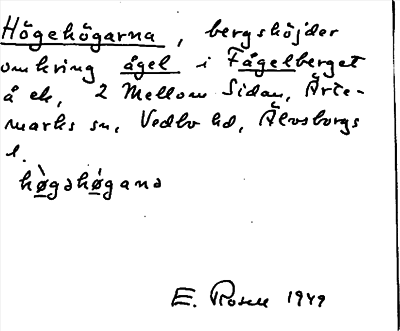 Högehögarna, bergshöjder
omkring ågel i Fågelberget
å ek, 2 Mellom Sidan, Ärte-
marks sn, Vedbo hd, Älvsborgs
l.
hø̀gəhǿgana
E. Rosell 1949